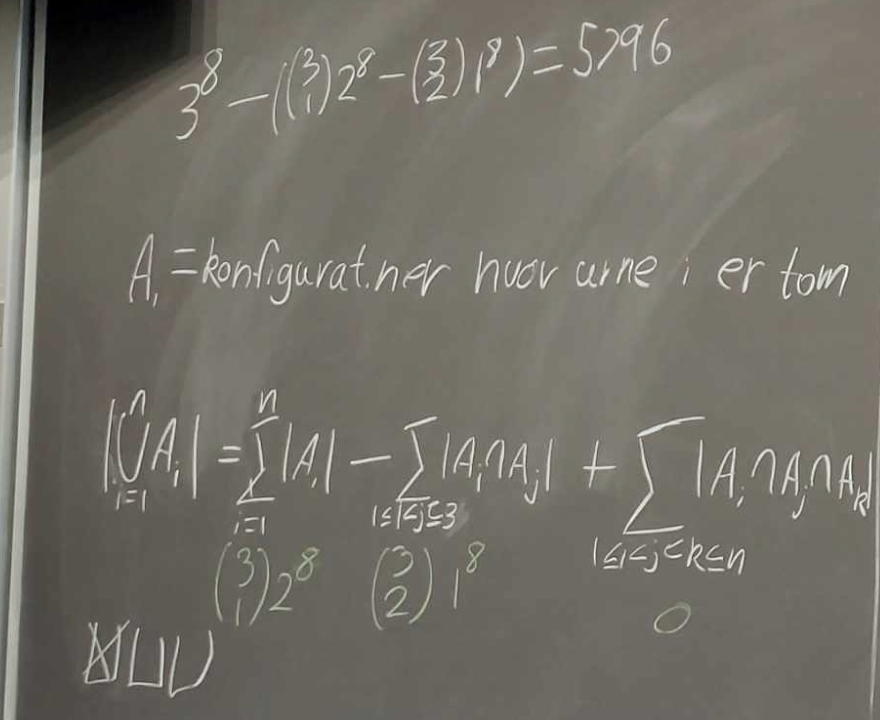 3⁸ – ((3 1)2⁸ – (3 2)1⁸) = 5796
Aᵢ = konfigurat.ner hvor urne i er tom
|⋃ᵢ₌₁ⁿ Aᵢ| = ∑ᵢ₌₁ⁿ |Aᵢ| – ∑1≤i<j≤3 |Aᵢ∩Aⱼ| + ∑1≤i<j<k≤n |Aᵢ∩Aⱼ∩Aₖ|
(3 1)2⁸ (3 2)1⁸ 0